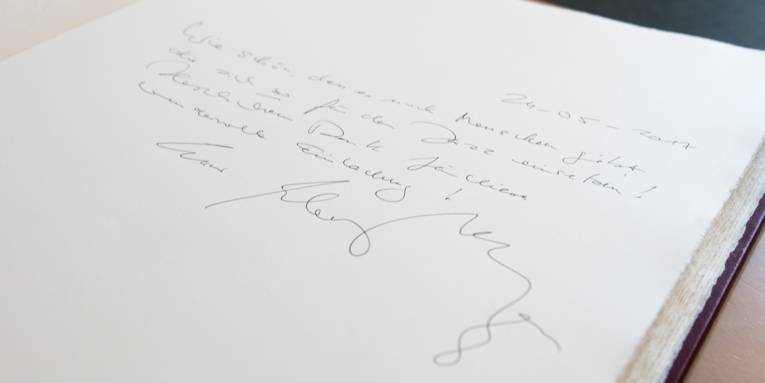 24-05-2017
Wie schön, dass es noch Menschen gibt
die sich so für den Jazz einsetzen!
Herzlichen Dank für diese
wundervolle Einladung!